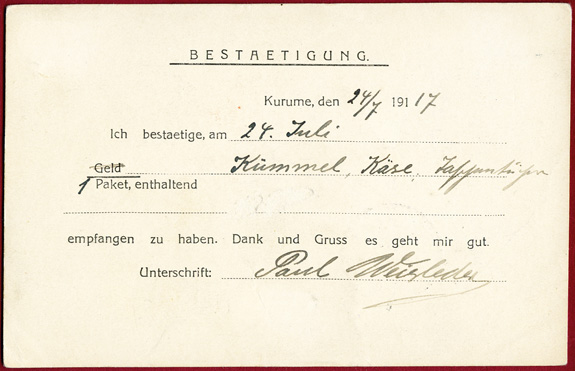 BESTAETIGUNG.
Kurume, den 24/7 1917
Ich bestaetige, am 24. Juli
Geld Kümmel, Käse,
1 Paket, enthaltend
empfangen zu haben. Dank und Gruss es geht mir gut.
Unterschrift: Paul